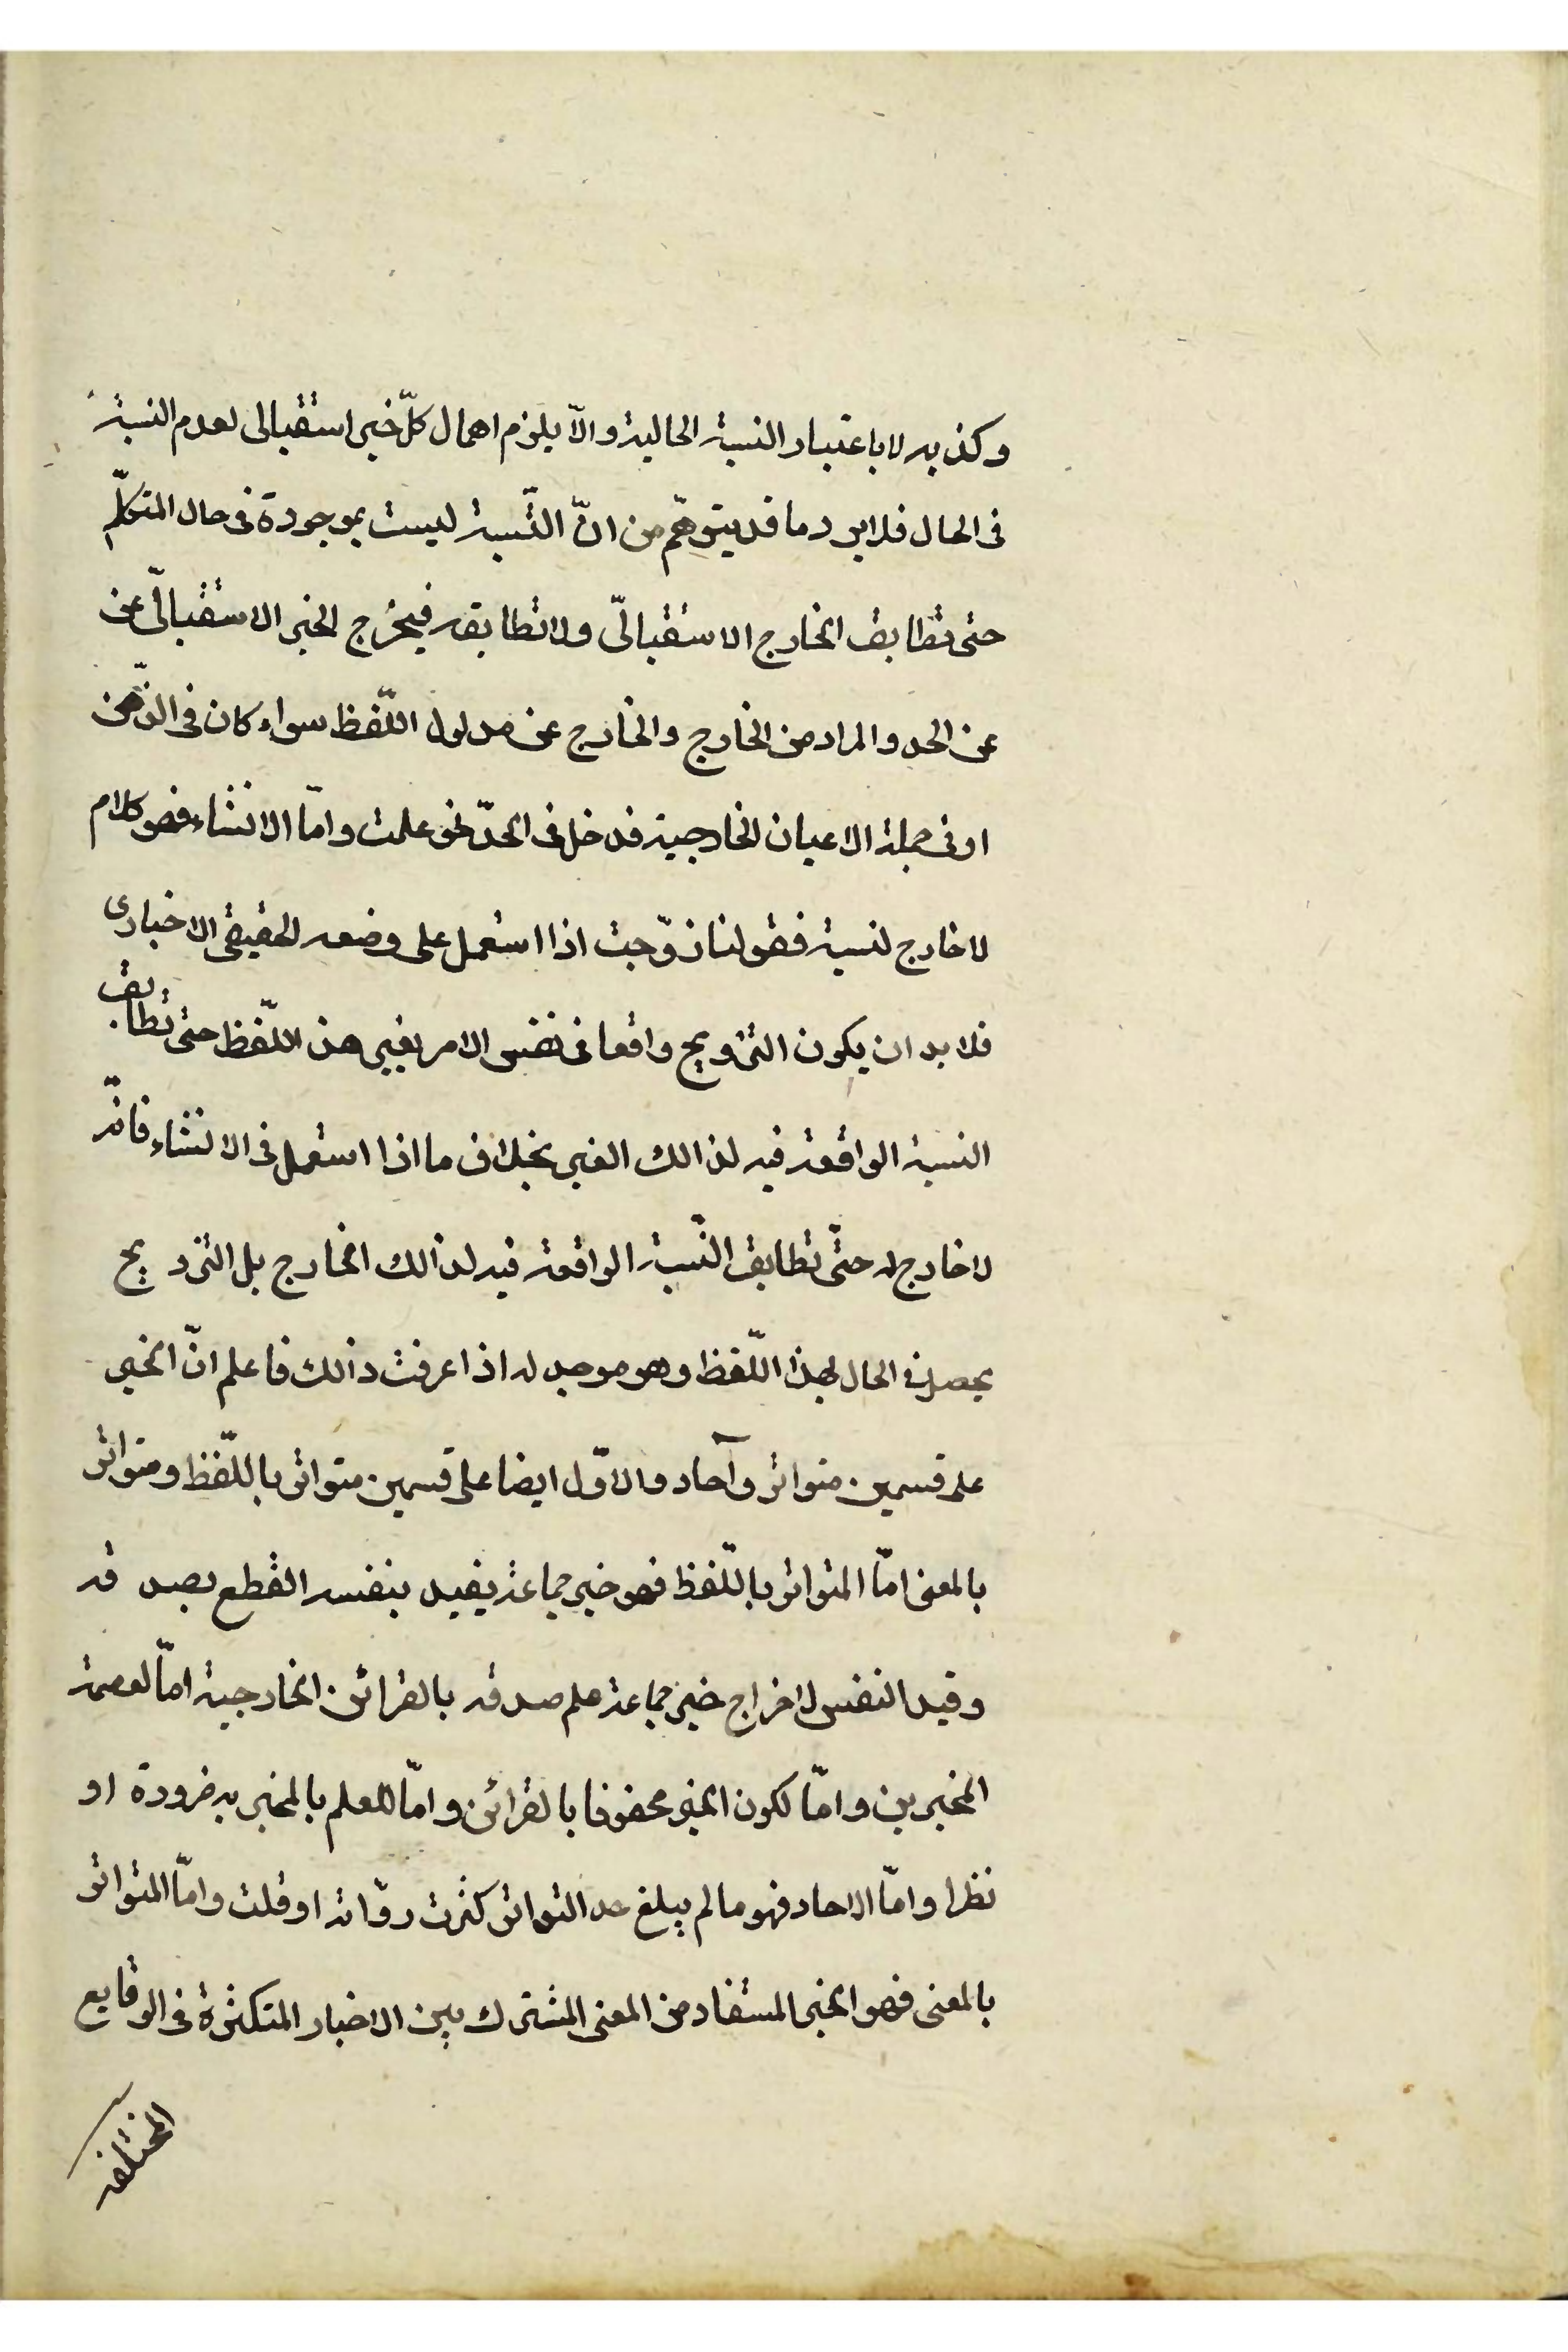 وكذبه لا باعتبار النسبة الحالية والّا يلزم اهمال كلّ خبر استقبالى لعدم النسبة
فى الحال فلا يرد ما قد يتوهّم من انّ النّسبة ليست بموجودة فى حال المتكلّم
حتى تطابق الخارج الاستقبالىّ ولا تطابقه فيخرج الخبر الاستقبالىّ عن
عن الحد والمراد من الخارج والخارج عن مدلول اللّفظ سواء كان فى الذّهن
او فى جملة الاعيان الخارجية فدخل فى الحدّ نحو علمت وامّا الانشاء فهو كلام
لا خارج لنسبة فقولنا زوّجت اذا استعمل على وضعه الحقيقى الاخبارى
فلا بد ان يكون التزويج واقعا فى نفس الامر بغير هذ اللّفظ حتى تطابق
النسبة الواقعة فيه لذالك الغير بخلاف ما اذا استعمل فى الانشاء فانّه
لا خارج له حتّى تطابق النّسبة الواقعة فيه لذالك الخارج بل التزويج
يحصل فى الحال بهذا اللّفظ وهو موجد له اذا عرفت ذالك فاعلم انّ الخبر
على قسمين متواتر وآحاد والاوّل ايضا على قسمين متواتر باللّفظ ومتواتر
بالمعنى امّا المتواتر باللّفظ فهو خبر جماعة يفيد بنفسه القطع بصدقه
وقيد النفس لاخراج خبر جماعة علم صدقه بالقرائن الخارجية امّا لعصمة
المخبرين وامّا لكون الخبر محفوفا بالقرائن وامّا للعلم بالمخبر به ضرورة او
نظرا وامّا الاحاد فهو ما لم يبلغ حد التواتر كثرت روّاته او قلت وامّا المتواتر
بالمعنى فهو الخبر المستفاد من المعنى المشترك بين الاخبار المتكثرة فى الوقايع
المختلفة